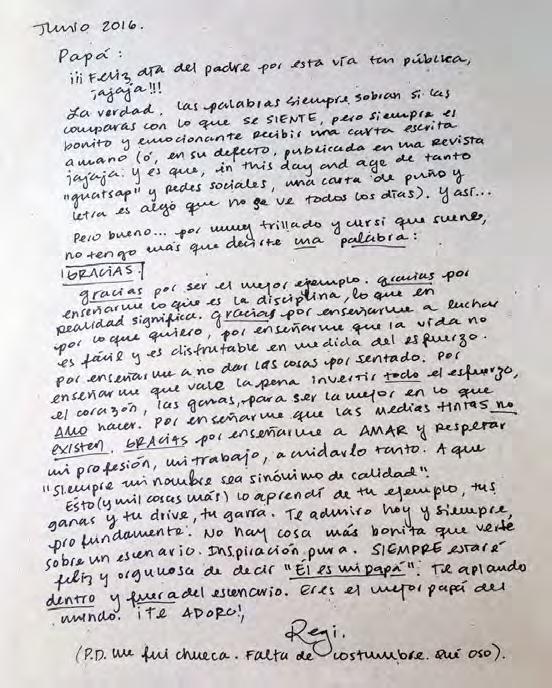 Junio 2016.
Papá:
¡¡¡Feliz día del padre por esta vía tan pública,
¡ajaja!!!
La verdad. las palabras siempre sobran si las
comparas con lo que se SIENTE, pero siempre es
bonito y emocionante recibir una carta escrita
a mano (ó, en su defecto, publicada en una revista
jajaja. y es que, in this day and age de tanto
"guatsap" y redes sociales, una carta de puño y
letra es algo que no se ve todos los días). Y así...
Pero bueno... por muy trillado y cursi que suene,
no tengo más que decirte una palabra:
¡GRACIAS!
gracias por ser el mejor ejemplo. gracias por
enseñarme lo que es la disciplina, lo que en
realidad significa. gracias por enseñarme a luchar
por lo que quiero, por enseñarme que la vida no
es fácil y es disfrutable en medida del esfuerzo.
Por enseñarme a no dar las cosas por sentado. Por
enseñarme que vale la pena invertir todo el esfuerzo,
el corazón, las ganas, para ser la mejor en lo que
AMO hacer. Por enseñarme que las medias tintas no
existen. GRACIAS por enseñarme a AMAR y respetar
mi profesión, mi trabajo, a cuidarlo tanto. A que
"siempre mi nombre sea sinónimo de calidad".
Esto (y mil cosas más) lo aprendí de tu ejemplo, tus
ganas y tu drive, tu garra. Te admiro hoy y siempre,
profundamente. No hay cosa más bonita que verte
sobre un escenario. Inspiración pura. SIEMPRE estaré
feliz y orgullosa de decir "Él es mi papá". Te aplaudo
dentro y fuera del escenario. Eres el mejor papá del
mundo. ¡TE ADORO!,
Regi.
(P.D. me fui chueca. Falta de costumbre. Qué oso).